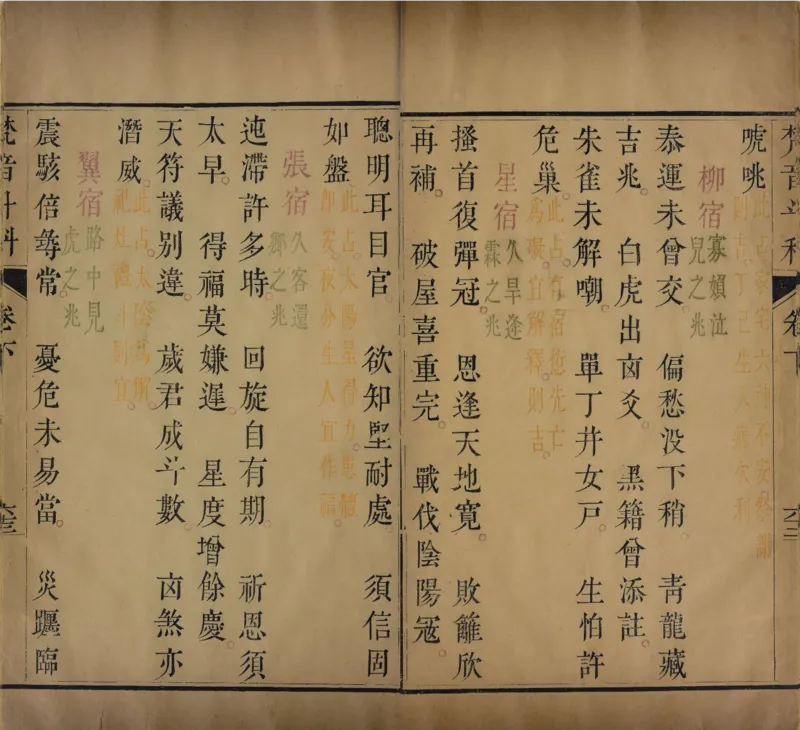 梵音斗科 卷下
唬咷 此占家宅六神不安祭謝則吉
柳宿 寡婦泣兒之兆
泰運未曾交。偏愁没下稍。青龍藏
吉兆。白虎出卤爻。黒籍曾添註。
朱雀未解嘲。單丁并女戸。生怕許
危巢。此占有宿 先亡為礙。宜解釋則吉。
星宿 久旱逢霖之兆
搔首復彈冠。恩逢天地寛。敗籬欣
再補。破屋喜重完。戰伐陰陽冦。
聰明耳目官。欲知堅耐處。須信固
如盤。此占太陽星得力 生人宜作福。
張宿 久客還鄉之兆
迍滯許多時。回旋自有期。祈恩須
太早。得福莫嫌遲。星度增餘慶。
天符議别違。歲君成斗數。卤煞亦
潛威。此占太陰爲解。祀灶禮斗則宜。
翼宿 路中見虎之兆
震駭倍尋常。憂危未易當。災躔臨
梵音斗科 卷下